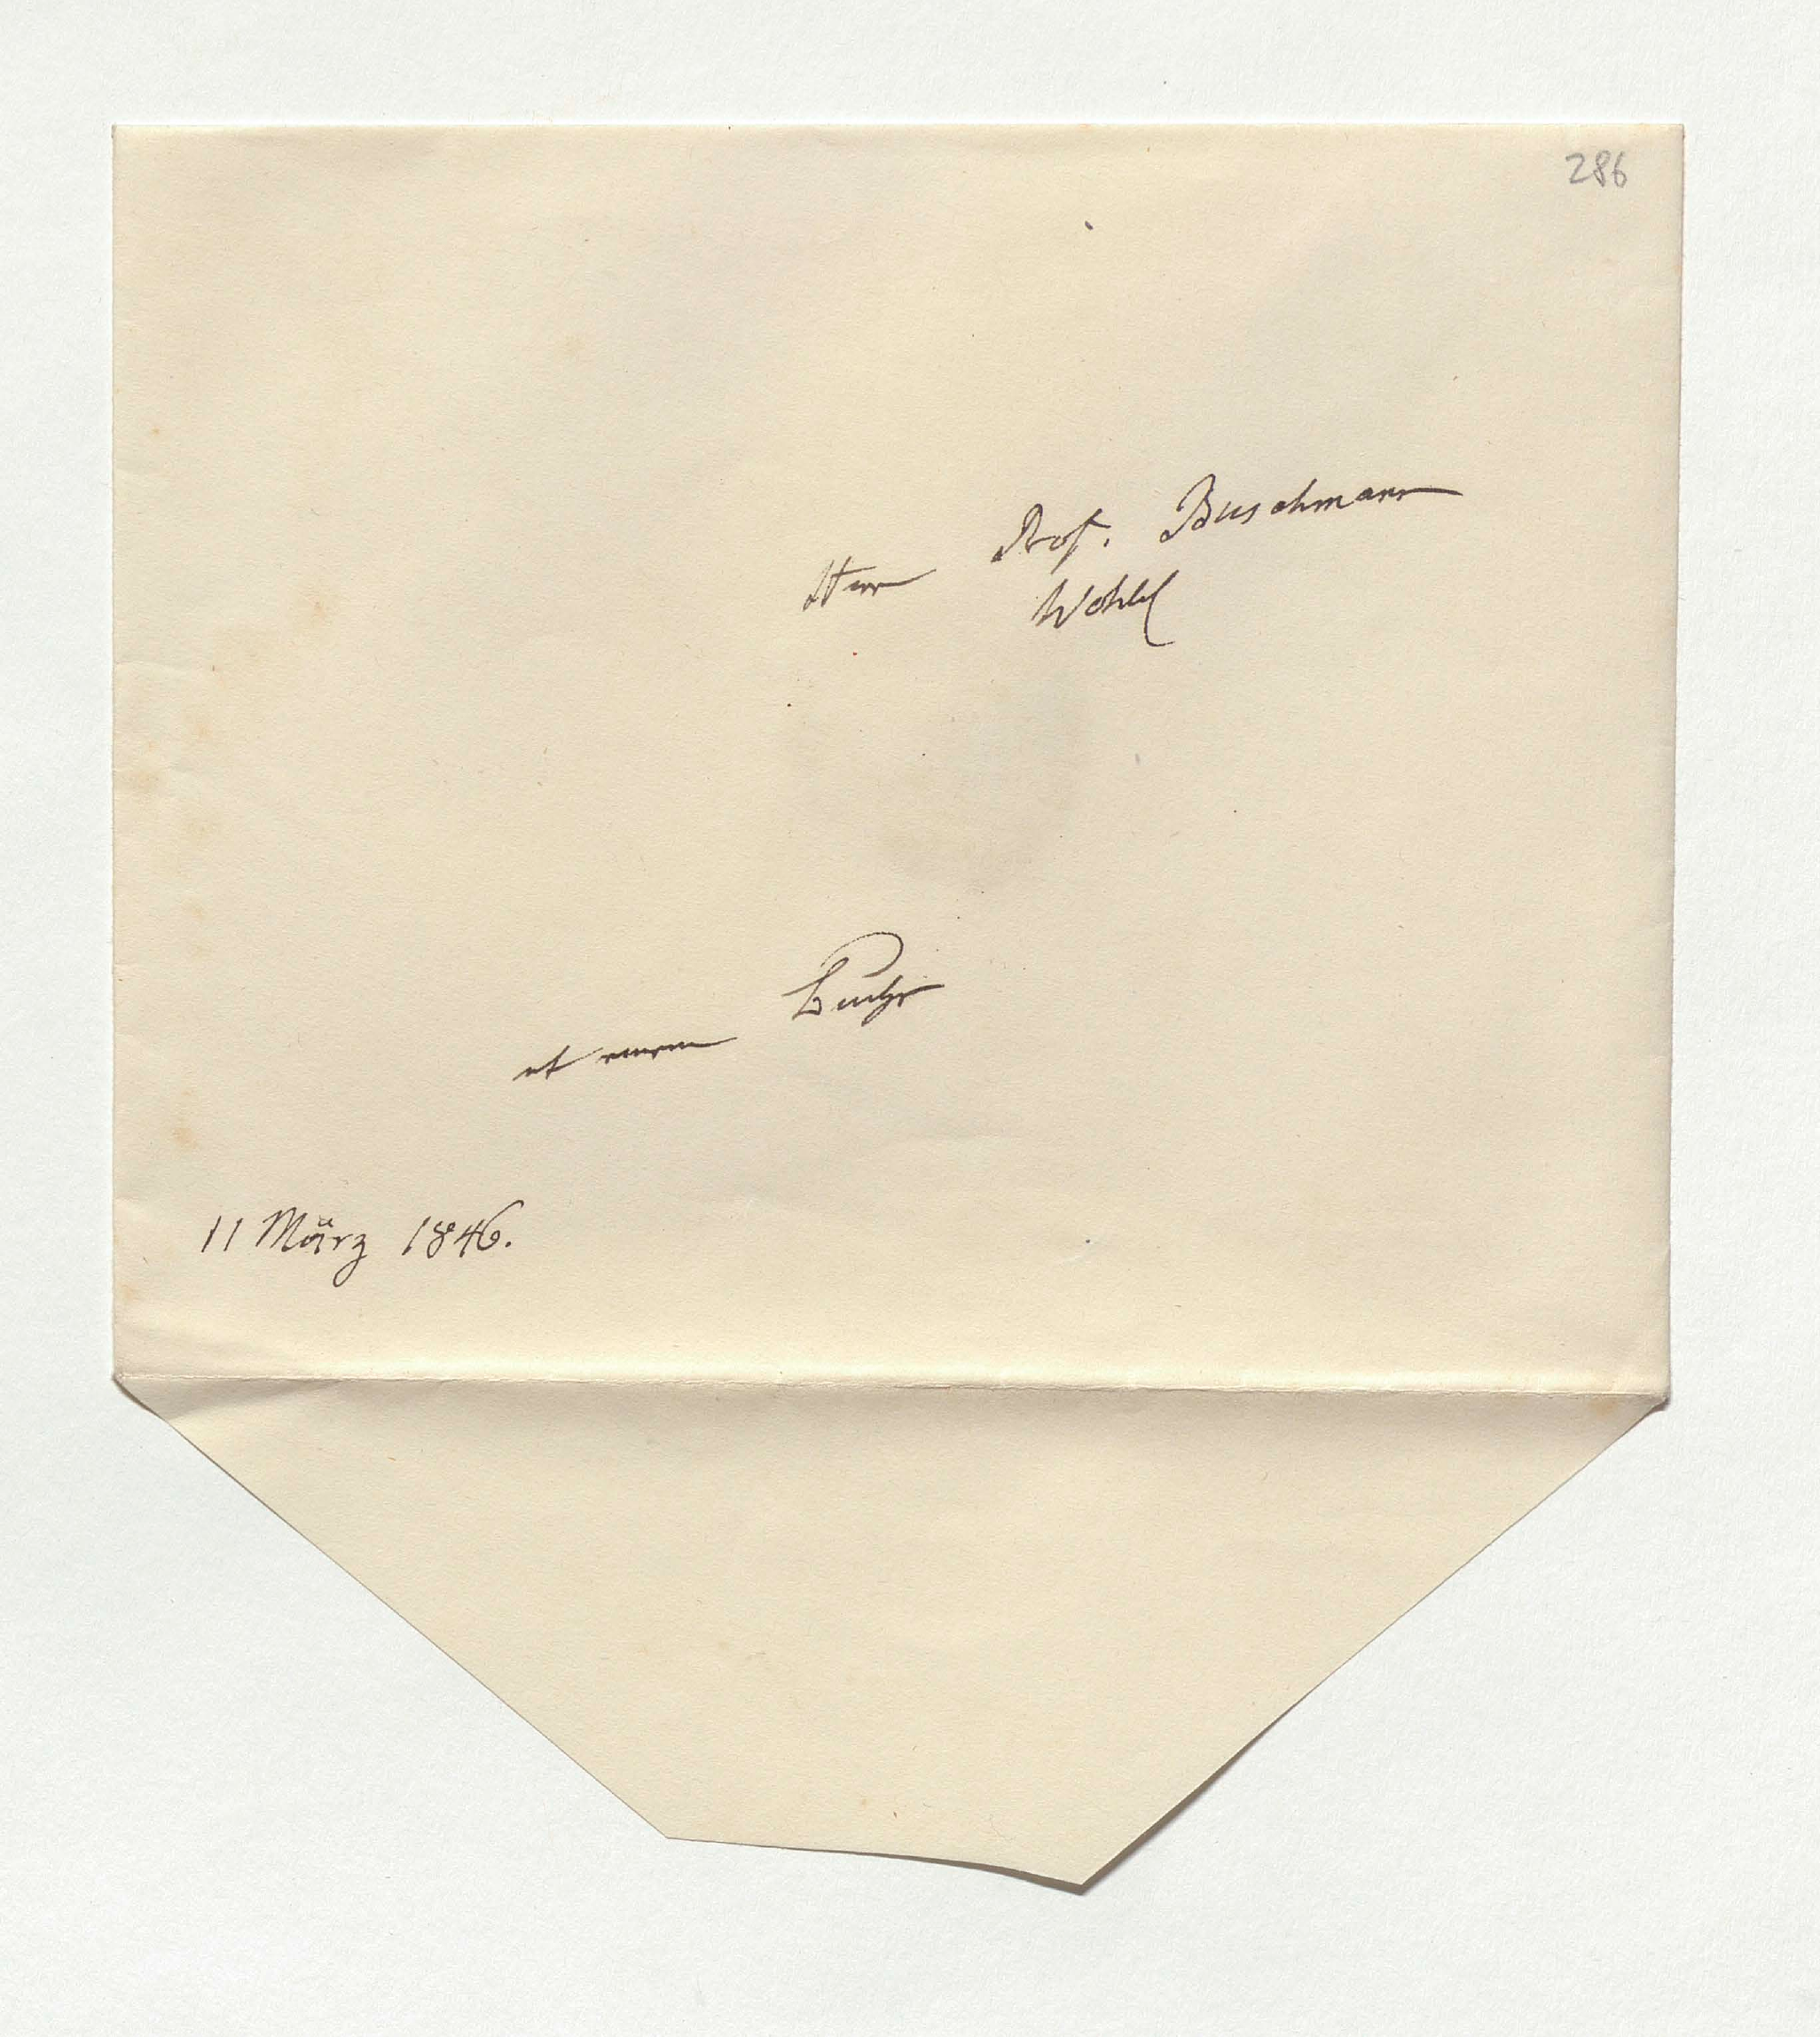 286
Herr Prof. Buschmann
Wohl
einem Buche
11 März 1846.